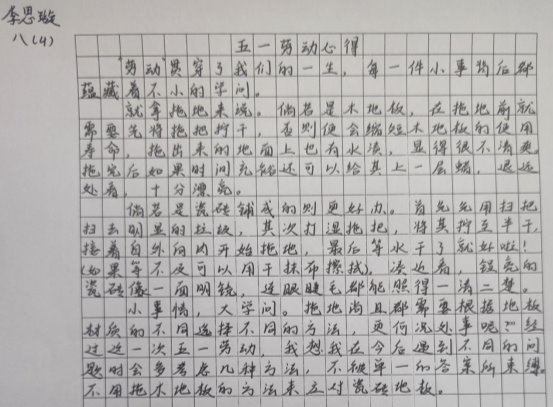 李思璇
八(4)
五一劳动心得
“劳动”贯穿了我们的一生，每一件小事背后都
蕴藏着不小的学问。
就拿拖地来说。倘若是木地板，在拖地前就
需要先将拖把拧干，否则便会缩短木地板的使用
寿命，拖出来的地面上也有水渍，显得很不清爽。
拖完后如果时间充裕还可以给其上一层蜡，退远
处看，十分漂亮。
倘若是瓷砖铺成的则更好办。首先先用扫把
扫去明显的垃圾，其次打湿拖把，将其拧至半干，
接着自外向内开始拖地，最后等水干了就好啦！
(如果等不及可以用干抹布擦拭)，凑近看，锃亮的
瓷砖像一面明镜，连眼睫毛都能照得一清二楚。
小事情，大学问。拖地尚且都需要根据地板
材质的不同选择不同的方法，更何况外事呢？经
过这一次五一劳动，我想我在今后遇到不同的问
题时会多考虑几种方法，不被单一的答案所束缚。
不用拖木地板的方法来应对瓷砖地板。